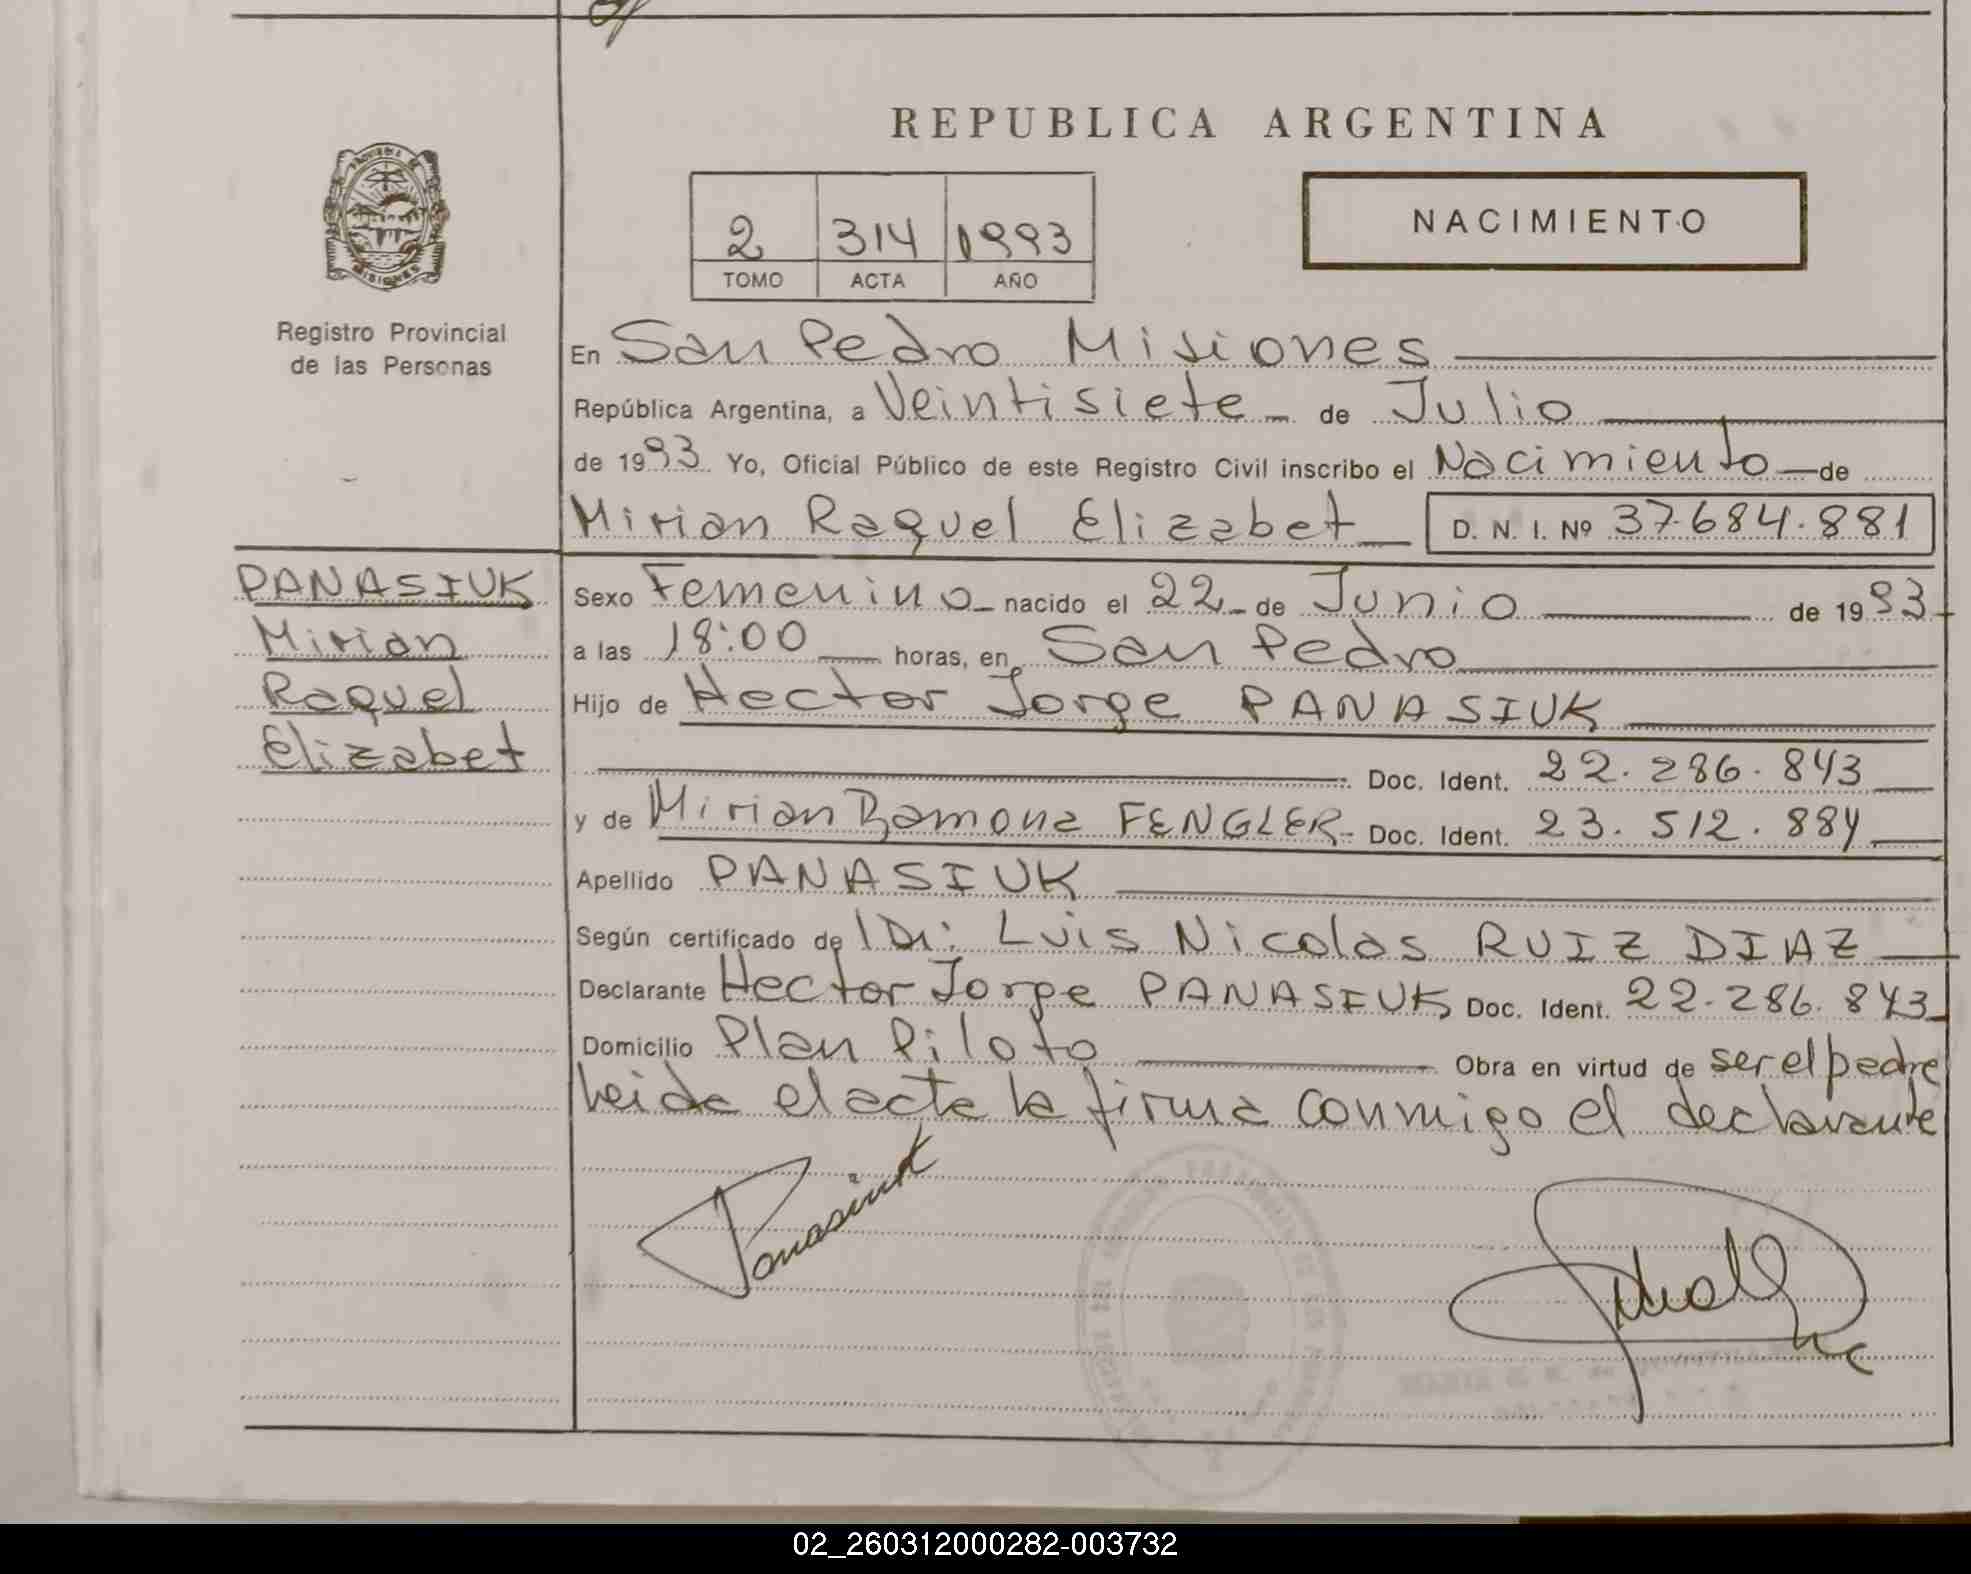 REPUBLICA ARGENTINA
NACIMIENTO
2 314 1993
TOMO ACTA AÑO
Registro Provincial
de las Personas
En San Pedro Misiones
República Argentina, a Veintisiete de Julio
de 1993 Yo, Oficial Público de este Registro Civil inscribo el Nacimiento de
Mirian Raquel Elizabet D. N. I. Nº 37.684.881
PANASIUK
Mirian
Raquel
Elizabet
Sexo Femenino nacido el 22 de Junio de 1993
a las 18:00 horas, en San Pedro
Hijo de Hector Jorge PANASIUK
Doc. Ident. 22.286.843
y de Mirian Ramona FENGLER Doc. Ident. 23.512.884
Apellido PANASIUK
Según certificado de Dr: Luis Nicolas RUIZ DIAZ
Declarante Hector Jorge PANASIUK Doc. Ident. 22.286.843
Domicilio Plan Piloto Obra en virtud de ser el padre
Leida el acta la firma conmigo el declarante
Panasiuk
02_260312000282-003732